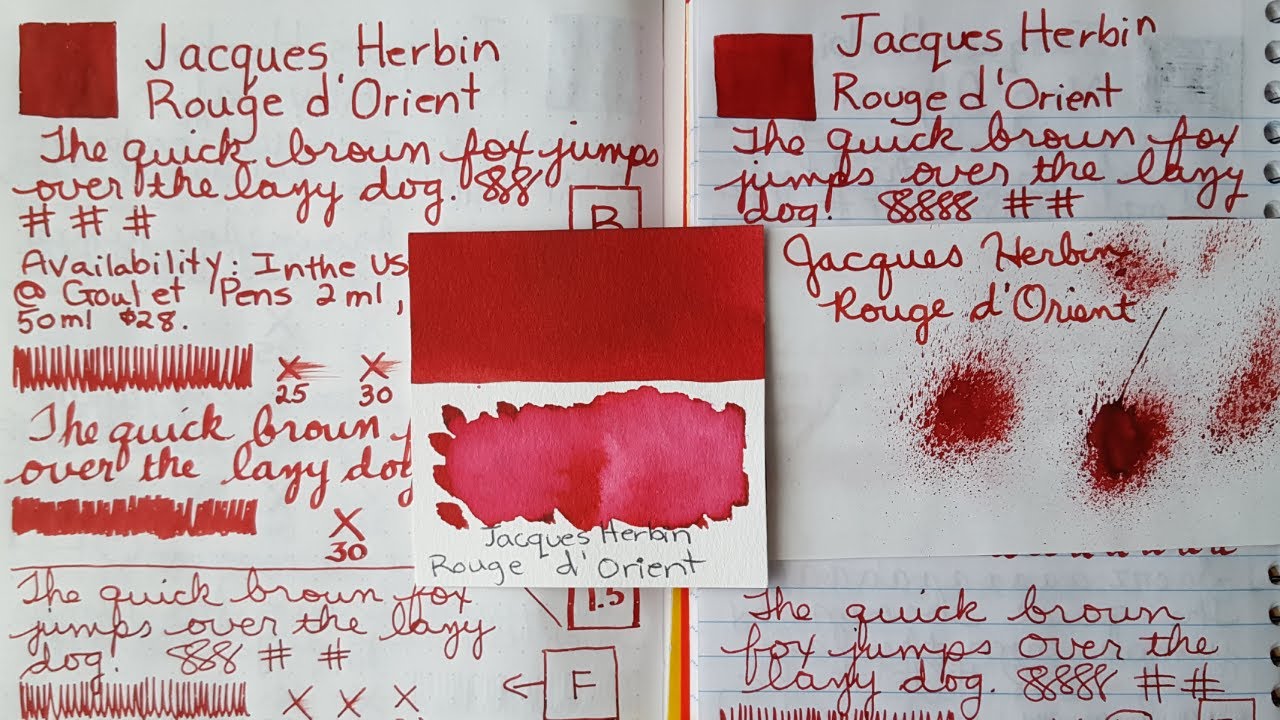 Jacques Herbin
Rouge d'Orient
The quick broun fox jumps
over the lazy dog. 888
# # #
B
Availability: In the US
@ Goulet Pens 2ml,
50ml $28.
X X
25 30
The quick brown f
over the lazy dog
X
30
The quick brown fox
jumps over the lazy
dog. 888 # #
1.5
F
X X X
Jacques Herbin
Rouge d'Orient
Jacques Herbin
Rouge d'Orient
The quick brown fox
jumps over the lazy
dog. 8888 # #
Jacques Herbin
Rouge d'Orient
The quick brown
fox jumps over the
lazy dog. 8888 # #